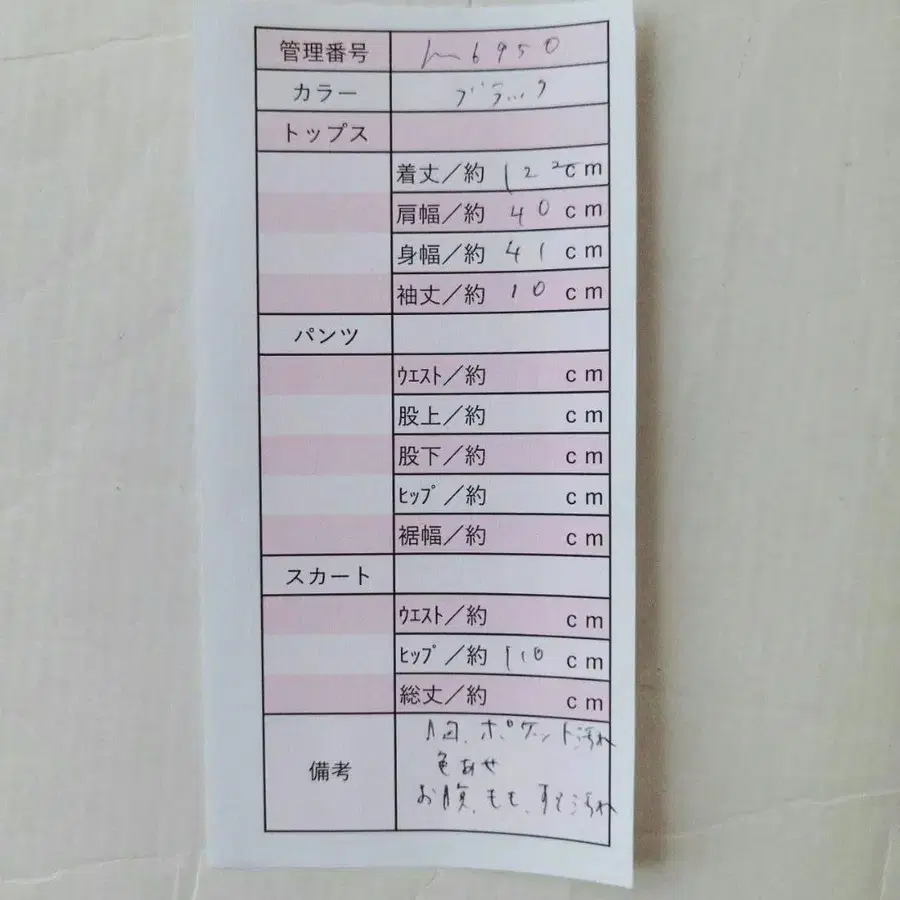 管理番号 m6950
カラー ブラック
トップス
着丈／約 122cm
肩幅／約 40cm
身幅／約 41cm
袖丈／約 10cm
パンツ
ｳｴｽﾄ／約 cm
股上／約 cm
股下／約 cm
ﾋｯﾌﾟ／約 cm
裾幅／約 cm
スカート
ｳｴｽﾄ／約 cm
ﾋｯﾌﾟ／約 110cm
総丈／約 cm
備考
ポケット汚れ
色あせ
お腹、もも、すそ汚れ